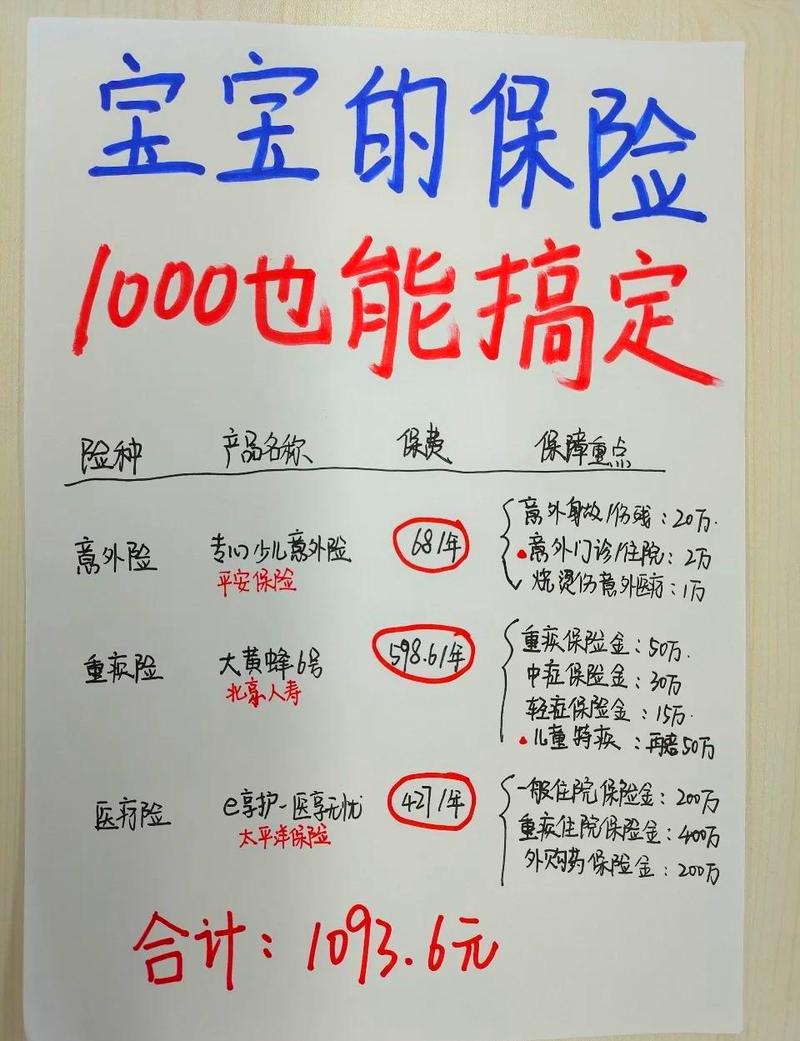 宝宝的保险
1000也能搞定
险种 产品名称 保费 保障重点
意外险 专心少儿意外险 68/年 意外身故/伤残：20万
平安保险 意外门诊/住院：2万
烧烫伤意外医疗：1万
重疾险 大黄蜂6号 598.6/年 重疾保险金：50万
北京人寿 中症保险金：30万
轻症保险金：15万
儿童特疾：再赔50万
医疗险 e享护-医享无忧 427/年 一般住院保险金：200万
太平洋保险 重疾住院保险金：400万
外购药保险金：200万
合计：1093.6元